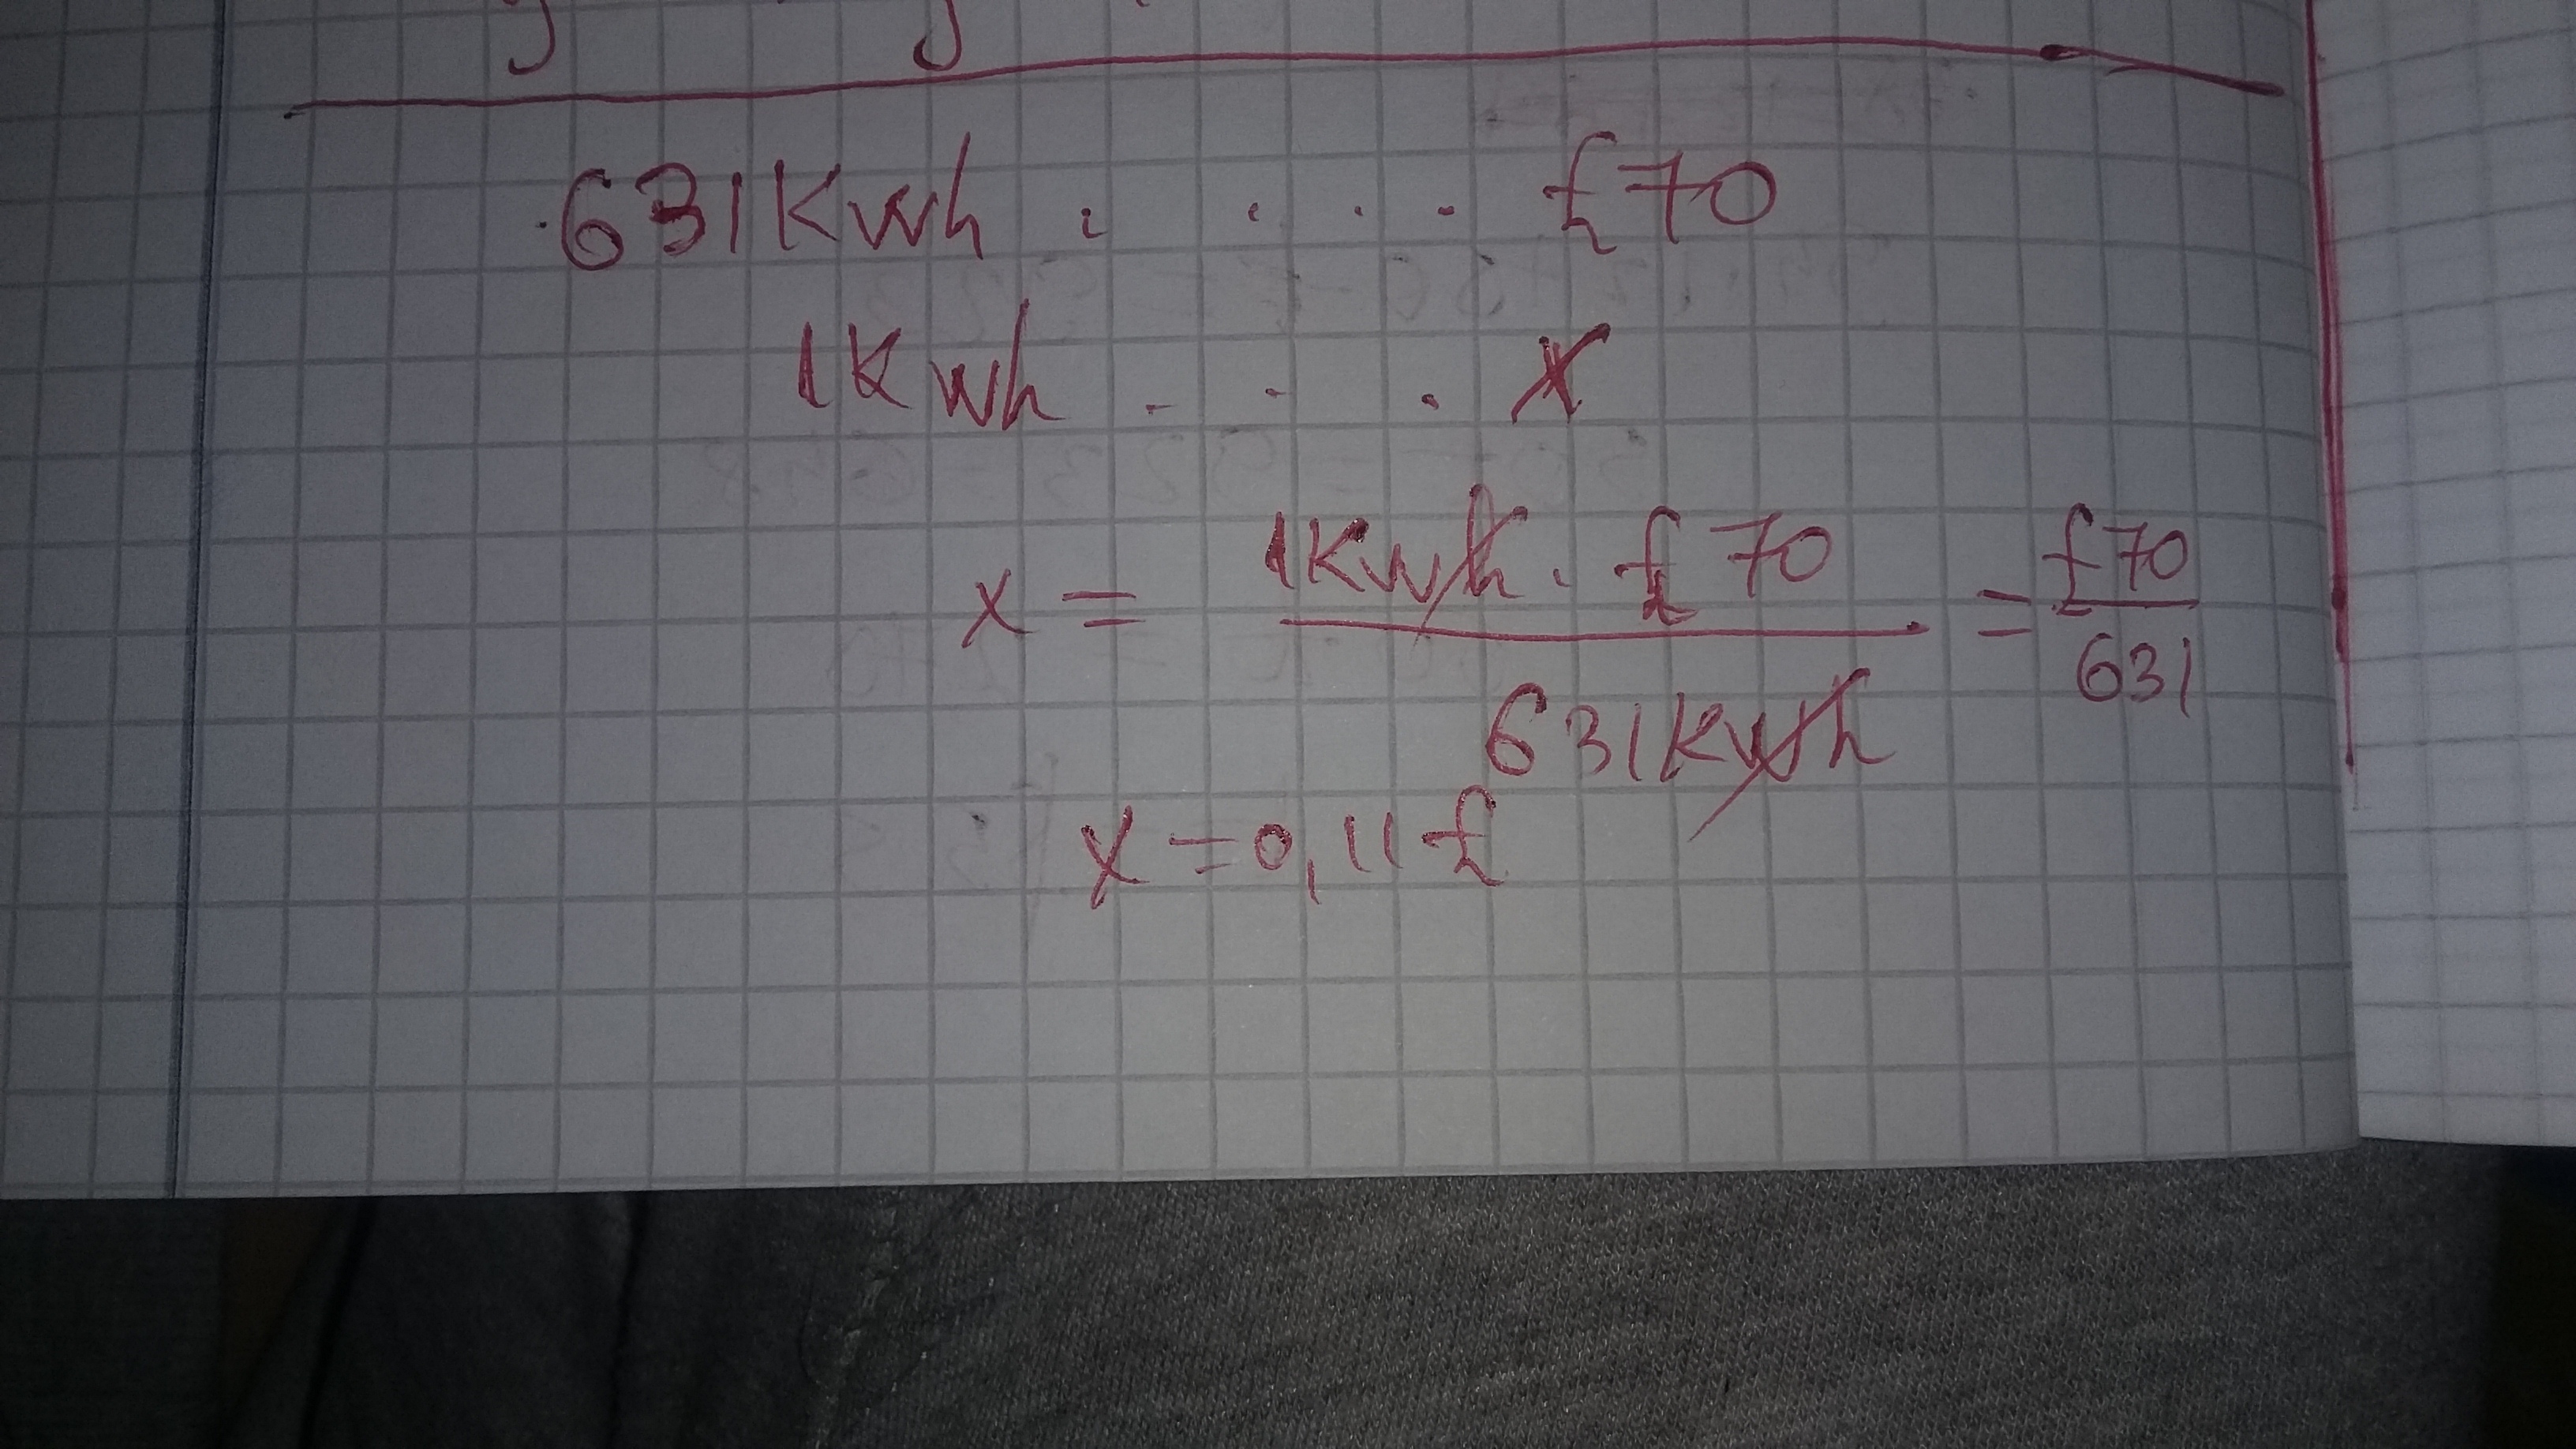 631Kwh . . . . £70
1Kwh . . . x
x = 1Kwh . £70 / 631Kwh = £70 / 631
x = 0,11 £